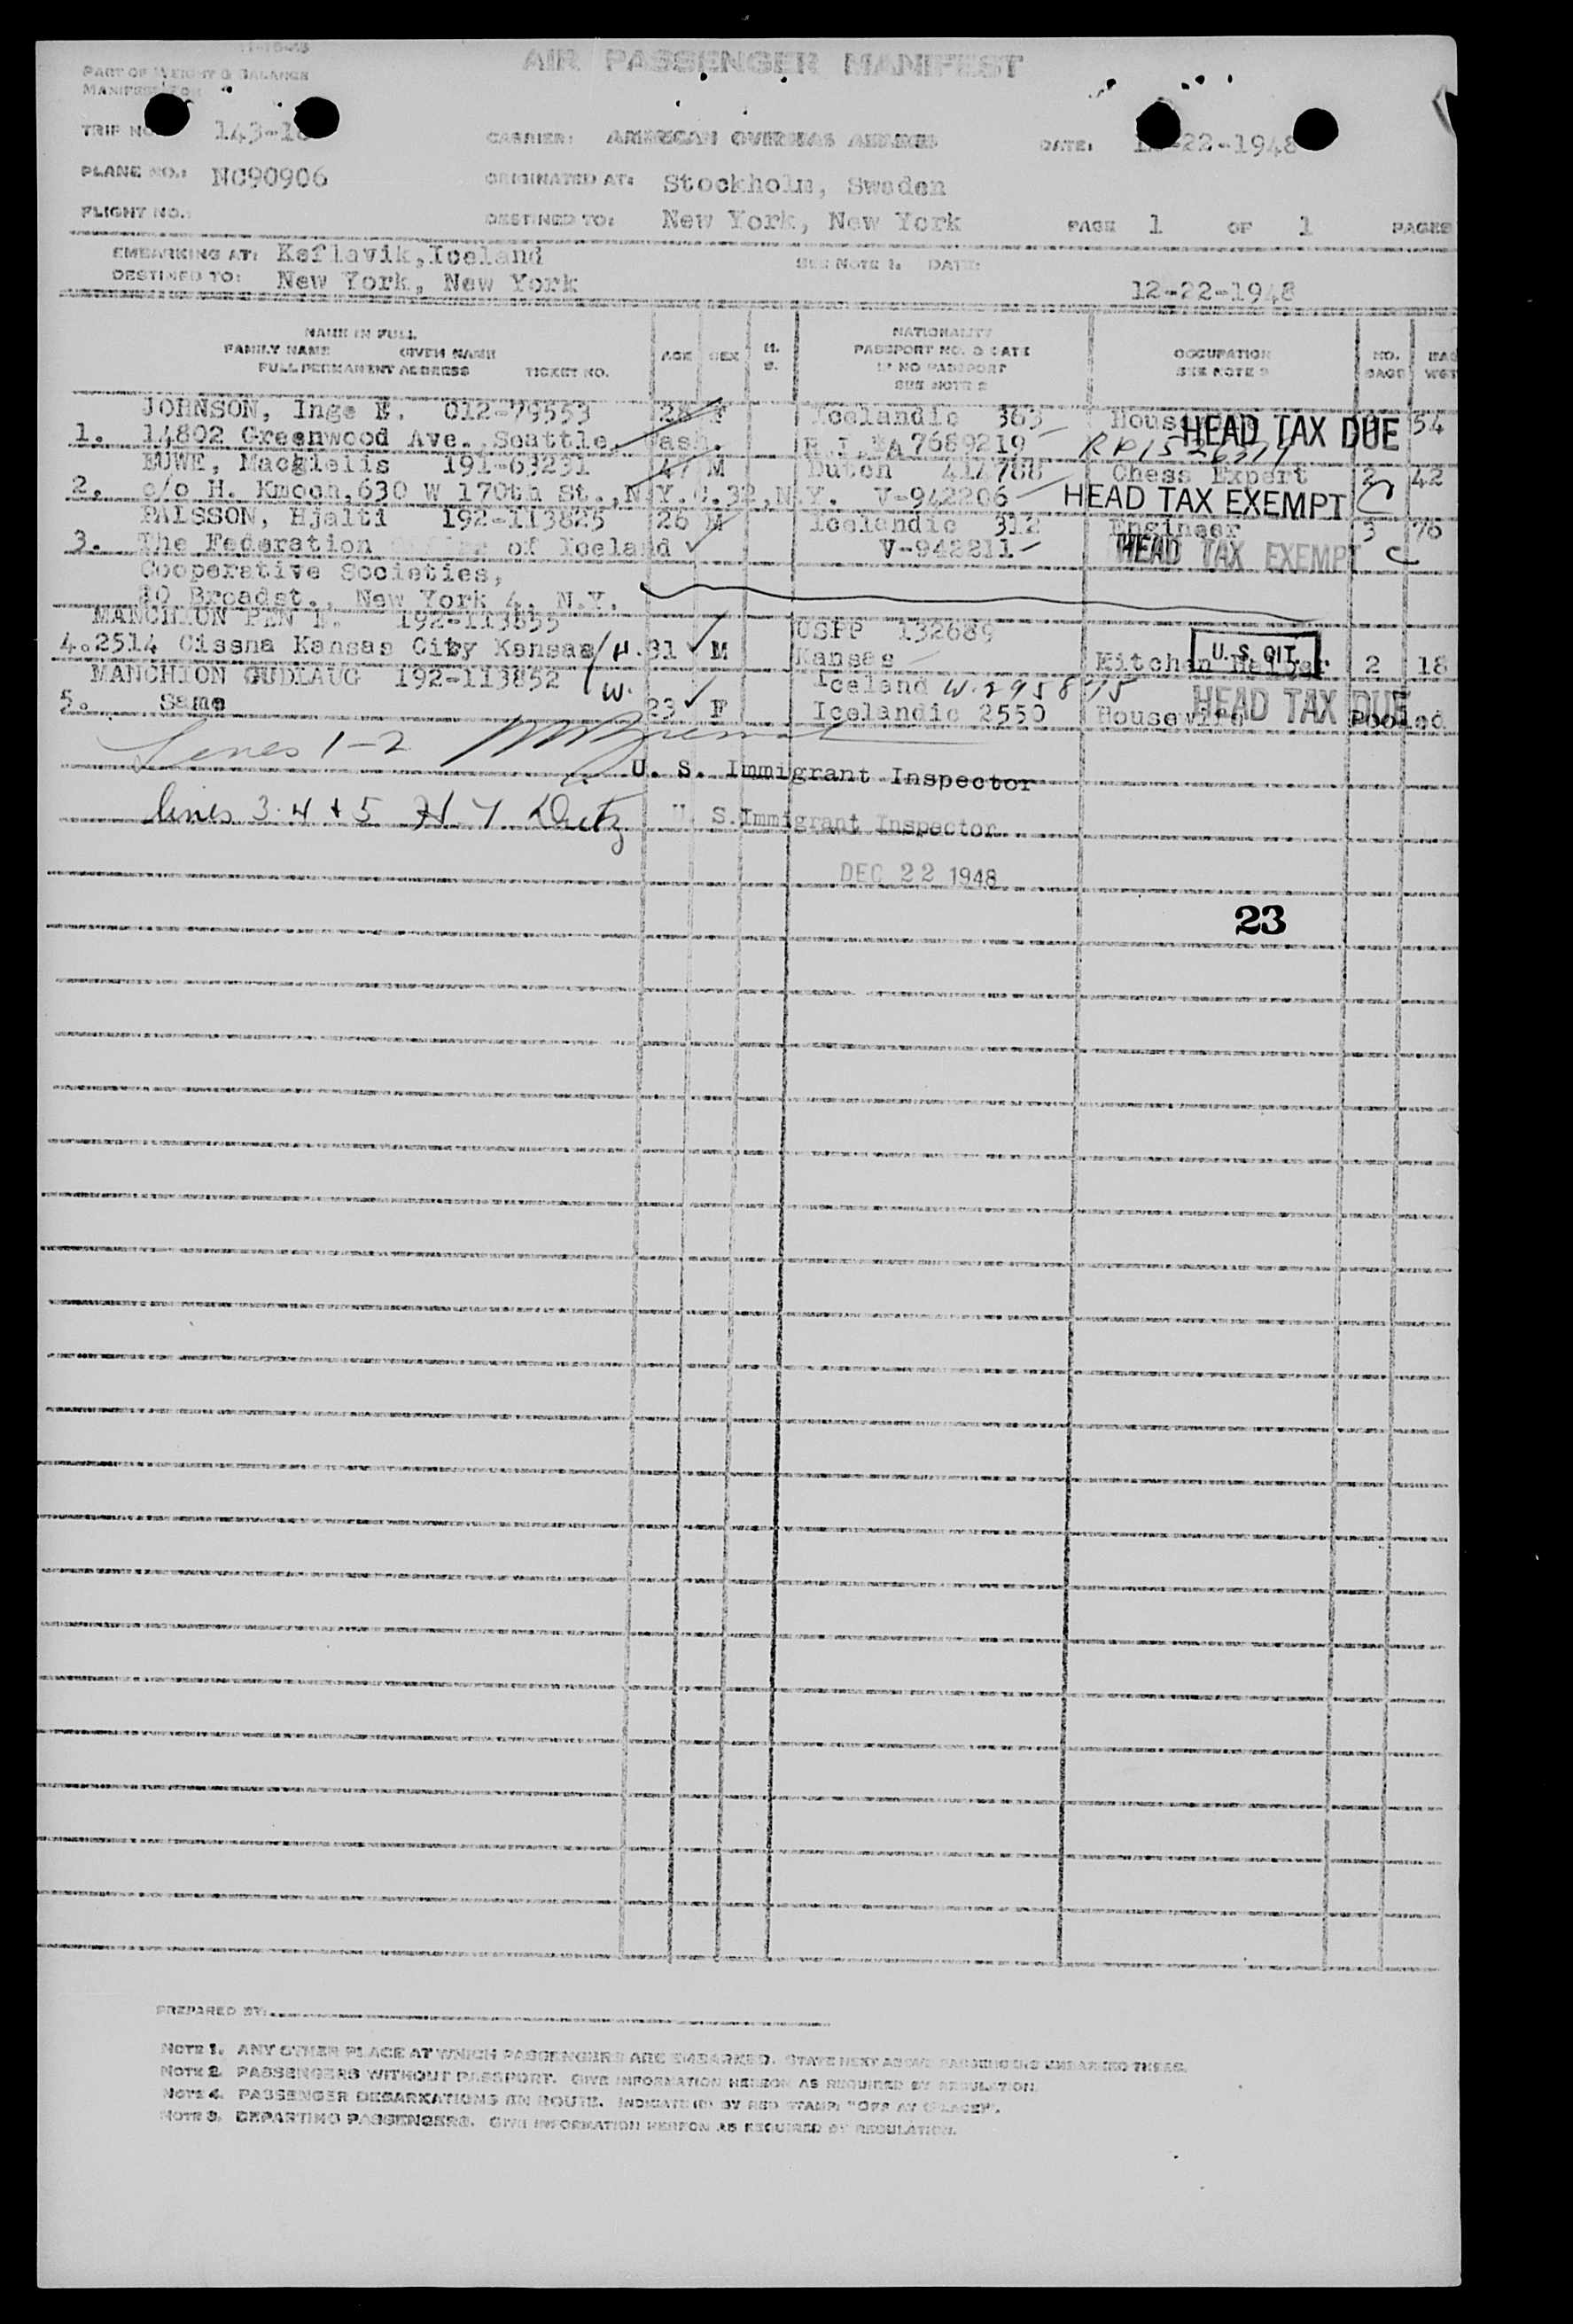 11-15-45
AIR PASSENGER MANIFEST
PART OF WEIGHT & BALANCE
MANIFEST FOR
TRIP NO. 143-18
CARRIER: AMERICAN OVERSEAS AIRLINES
DATE: -22-1948
PLANE NO.: NC90906
ORIGINATED AT: Stockholm, Sweden
FLIGHT NO.:
DESTINED TO: New York, New York
PAGE 1 OF 1 PAGES
EMBARKING AT: Keflavik,Iceland
SEE NOTE 1. DATE:
DESTINED TO: New York, New York
12-22-1948
NAME IN FULL
FAMILY NAME GIVEN NAME
FULL PERMANENT ADDRESS TICKET NO.
AGE SEX M. S.
NATIONALITY
PASSPORT NO. & DATE
IF NO PASSPORT
SEE NOTE 2
OCCUPATION
SEE NOTE 3
NO. BAGS
BAG WGT
JOHNSON, Inge E. 012-79553 28 F Icelandic 363 HEAD TAX DUE 54
1. 14802 Greenwood Ave. Seattle, Wash. R.I. #A7689219
EUWE, Machgielis 191-63231 47 M Dutch 414788 Chess Expert 2 42
2. c/o H. Kmoch,630 W 170th St.,N.Y.C.32,N.Y. V-942206 HEAD TAX EXEMPT
PALSSON, Hjalti 192-113825 26 M Icelandic 312 Engineer 3 76
3. The Federation of Iceland V-942211 HEAD TAX EXEMPT
Cooperative Societies,
Broadst., New York 4, N.Y.
MANCHION PEN E. 192-113855 USPP 132689
4.2514 Cissna Kansas City Kansas H. 31 M Kansas Kitchen Helper U.S. CIT. 2 18
MANCHION GUDLAUG 192-113852 W. Iceland W.295875
5. Same 23 F Icelandic 2550 Housewife HEAD TAX DUE Pooled
Lines 1-2
U. S. Immigrant Inspector
lines 3.4 + 5
U. S.Immigrant Inspector
DEC 22 1948
23
PREPARED BY:
NOTE 1. ANY OTHER PLACE AT WHICH PASSENGERS ARE EMBARKED. STATE NEXT ABOVE PASSENGERS EMBARKED THERE.
NOTE 2. PASSENGERS WITHOUT PASSPORT. GIVE INFORMATION HEREON AS REQUIRED BY REGULATION.
NOTE 4. PASSENGER DEBARKATIONS EN ROUTE. INDICATE BY RED STAMP: "OFF AT (PLACE)".
NOTE 3. DEPARTING PASSENGERS. GIVE INFORMATION HEREON AS REQUIRED BY REGULATION.